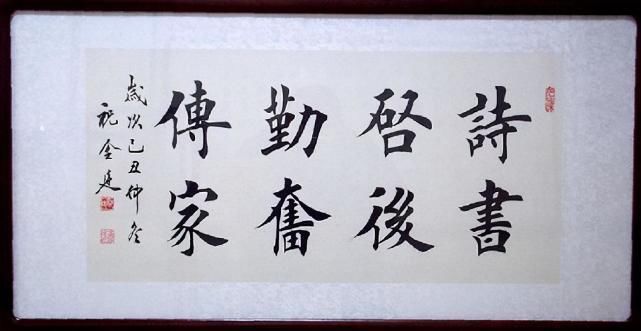 詩書
啓後
勤奮
傳家
歲次己丑仲冬
祝金廷